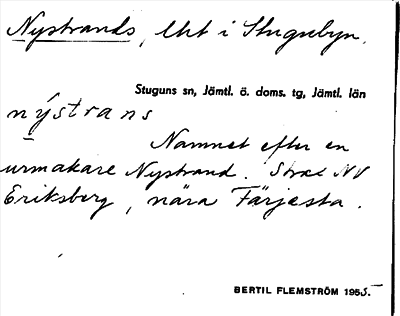 Nystrands, lht i Stugubyn.
Stuguns sn, Jämtl. ö. doms. tg, Jämtl. län
nýstrans
Namnet efter en
urmakare Nystrand. Strax NV
Eriksberg, nära Färjesta.
BERTIL FLEMSTRÖM 1955